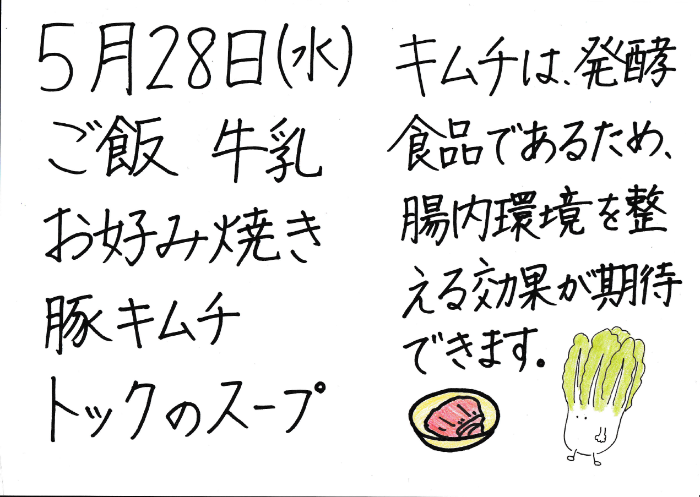 5月28日(水)
ご飯 牛乳
お好み焼き
豚キムチ
トックのスープ
キムチは、発酵
食品であるため、
腸内環境を整
える効果が期待
できます。